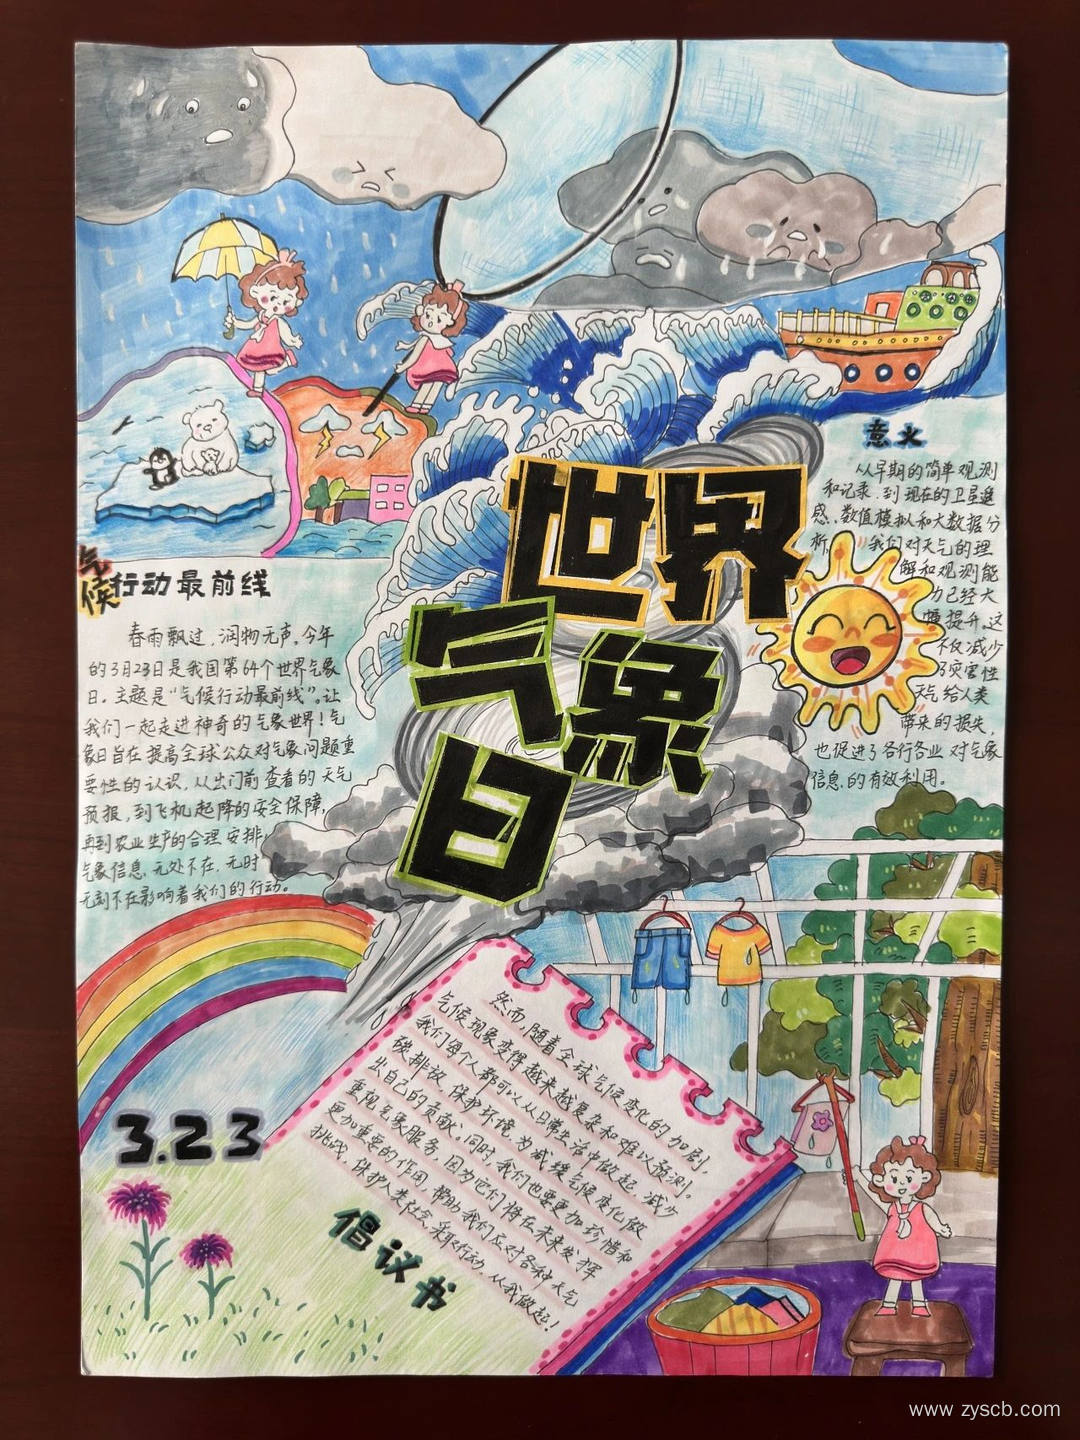 世界
气象
日
意义
从早期的简单观测
和记录,到现在的卫星遥
感、数值模拟和大数据分
析,我们对天气的理
解和观测能
力已经大
幅提升。这
不仅减少
了灾害性
天气给人类
带来的损失,
也促进了各行各业对气象
信息的有效利用。
气候行动最前线
春雨飘过,润物无声。今年
的3月23日是我国第64个世界气象
日。主题是“气候行动最前线”。让
我们一起走进神奇的气象世界!气
象日旨在提高全球公众对气象问题重
要性的认识,从出门前查看的天气
预报,到飞机起降的安全保障,
再到农业生产的合理安排,
气象信息无处不在,无时
无刻不在影响着我们的行动。
然而,随着全球气候变化的加剧,
气候现象变得越来越复杂和难以预测。
我们每个人都可以从日常生活中做起,减少
碳排放,保护环境,为减缓气候变化做
出自己的贡献。同时,我们也要更加珍惜和
重视气象服务,因为它们将在未来发挥
更加重要的作用,帮助我们应对各种天气
挑战,保护人类社会,采取行动,从我做起!
倡议书
3.23
www.zyscb.com